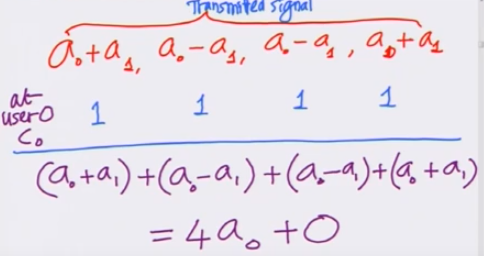 Transmitted signal
a₀+a₁, a₀-a₁, a₀-a₁, a₀+a₁
at
user 0
C₀ 1 1 1 1
(a₀+a₁)+(a₀-a₁)+(a₀-a₁)+(a₀+a₁)
= 4a₀ + 0